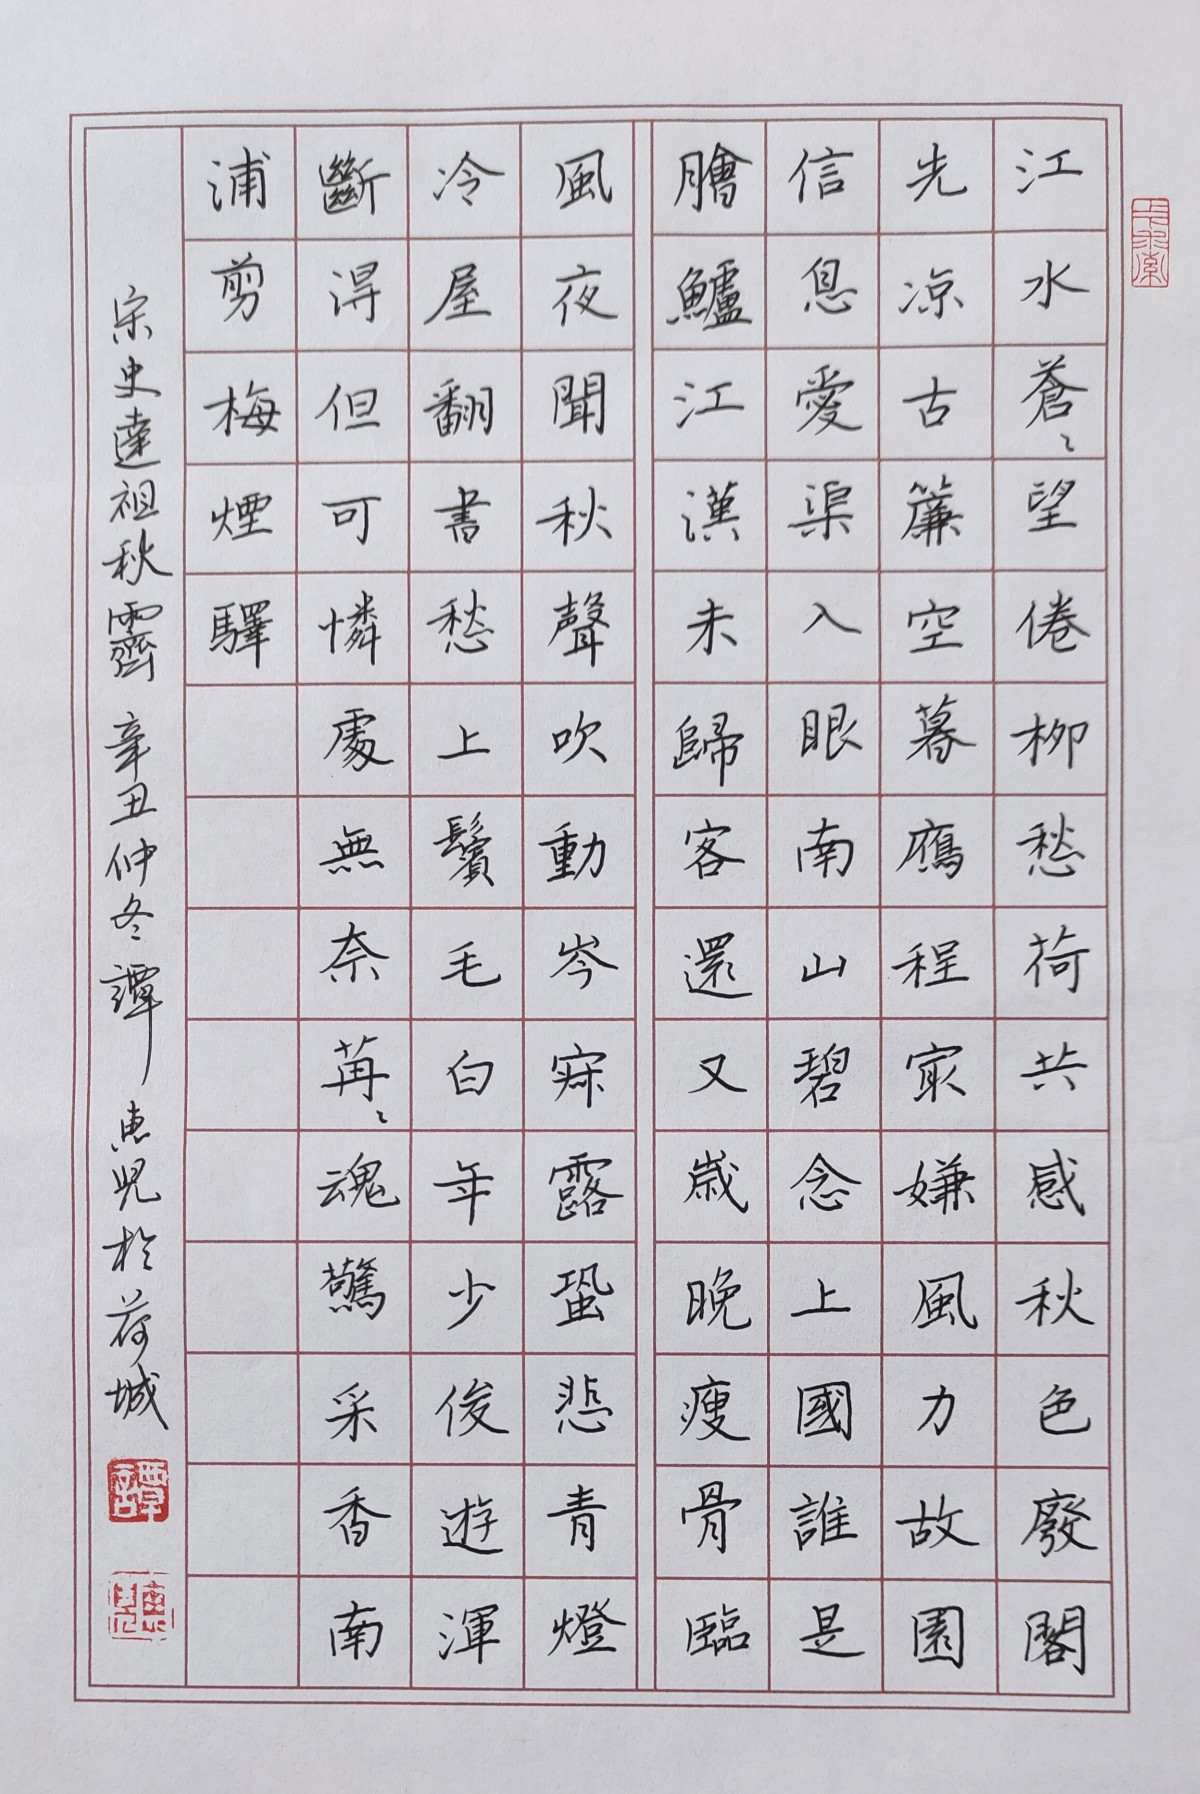 江水蒼〻望倦柳愁荷共感秋色廢閣
先凉古簾空暮鴈程㝡嫌風力故園
信息愛渠入眼南山碧念上國誰是
膾鱸江漢未歸客還又歲晚瘦骨臨
風夜聞秋聲吹動岑寂露蛩悲青燈
冷屋翻書愁上鬢毛白年少俊遊渾
斷得但可憐處無奈苒〻魂驚采香南
浦剪梅煙驛
宗史達祖秋霽辛丑仲冬譚惠兒於荷城
譚